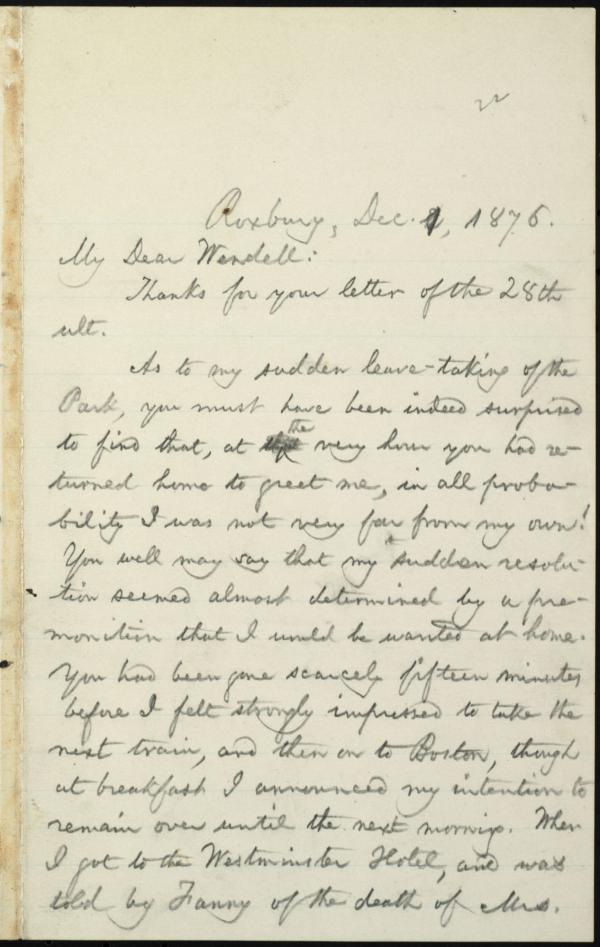 Roxbury, Dec. 1, 1876.
My Dear Wendell:
Thanks for your letter of the 28th
ult.
As to my sudden leave-taking of the
Park, you must have been indeed surprised
to find that, at the very hour you had re-
turned home to greet me, in all proba-
bility I was not very far from my own!
You well may say that my sudden resolu-
tion seemed almost determined by a pre-
monition that I would be wanted at home.
You had been gone scarcely fifteen minutes
before I felt strongly impressed to take the
next train, and then on to Boston, though
at breakfast I announced my intention to
remain over until the next morning. When
I got to the Westminster Hotel, and was
told by Fanny of the death of Mrs.